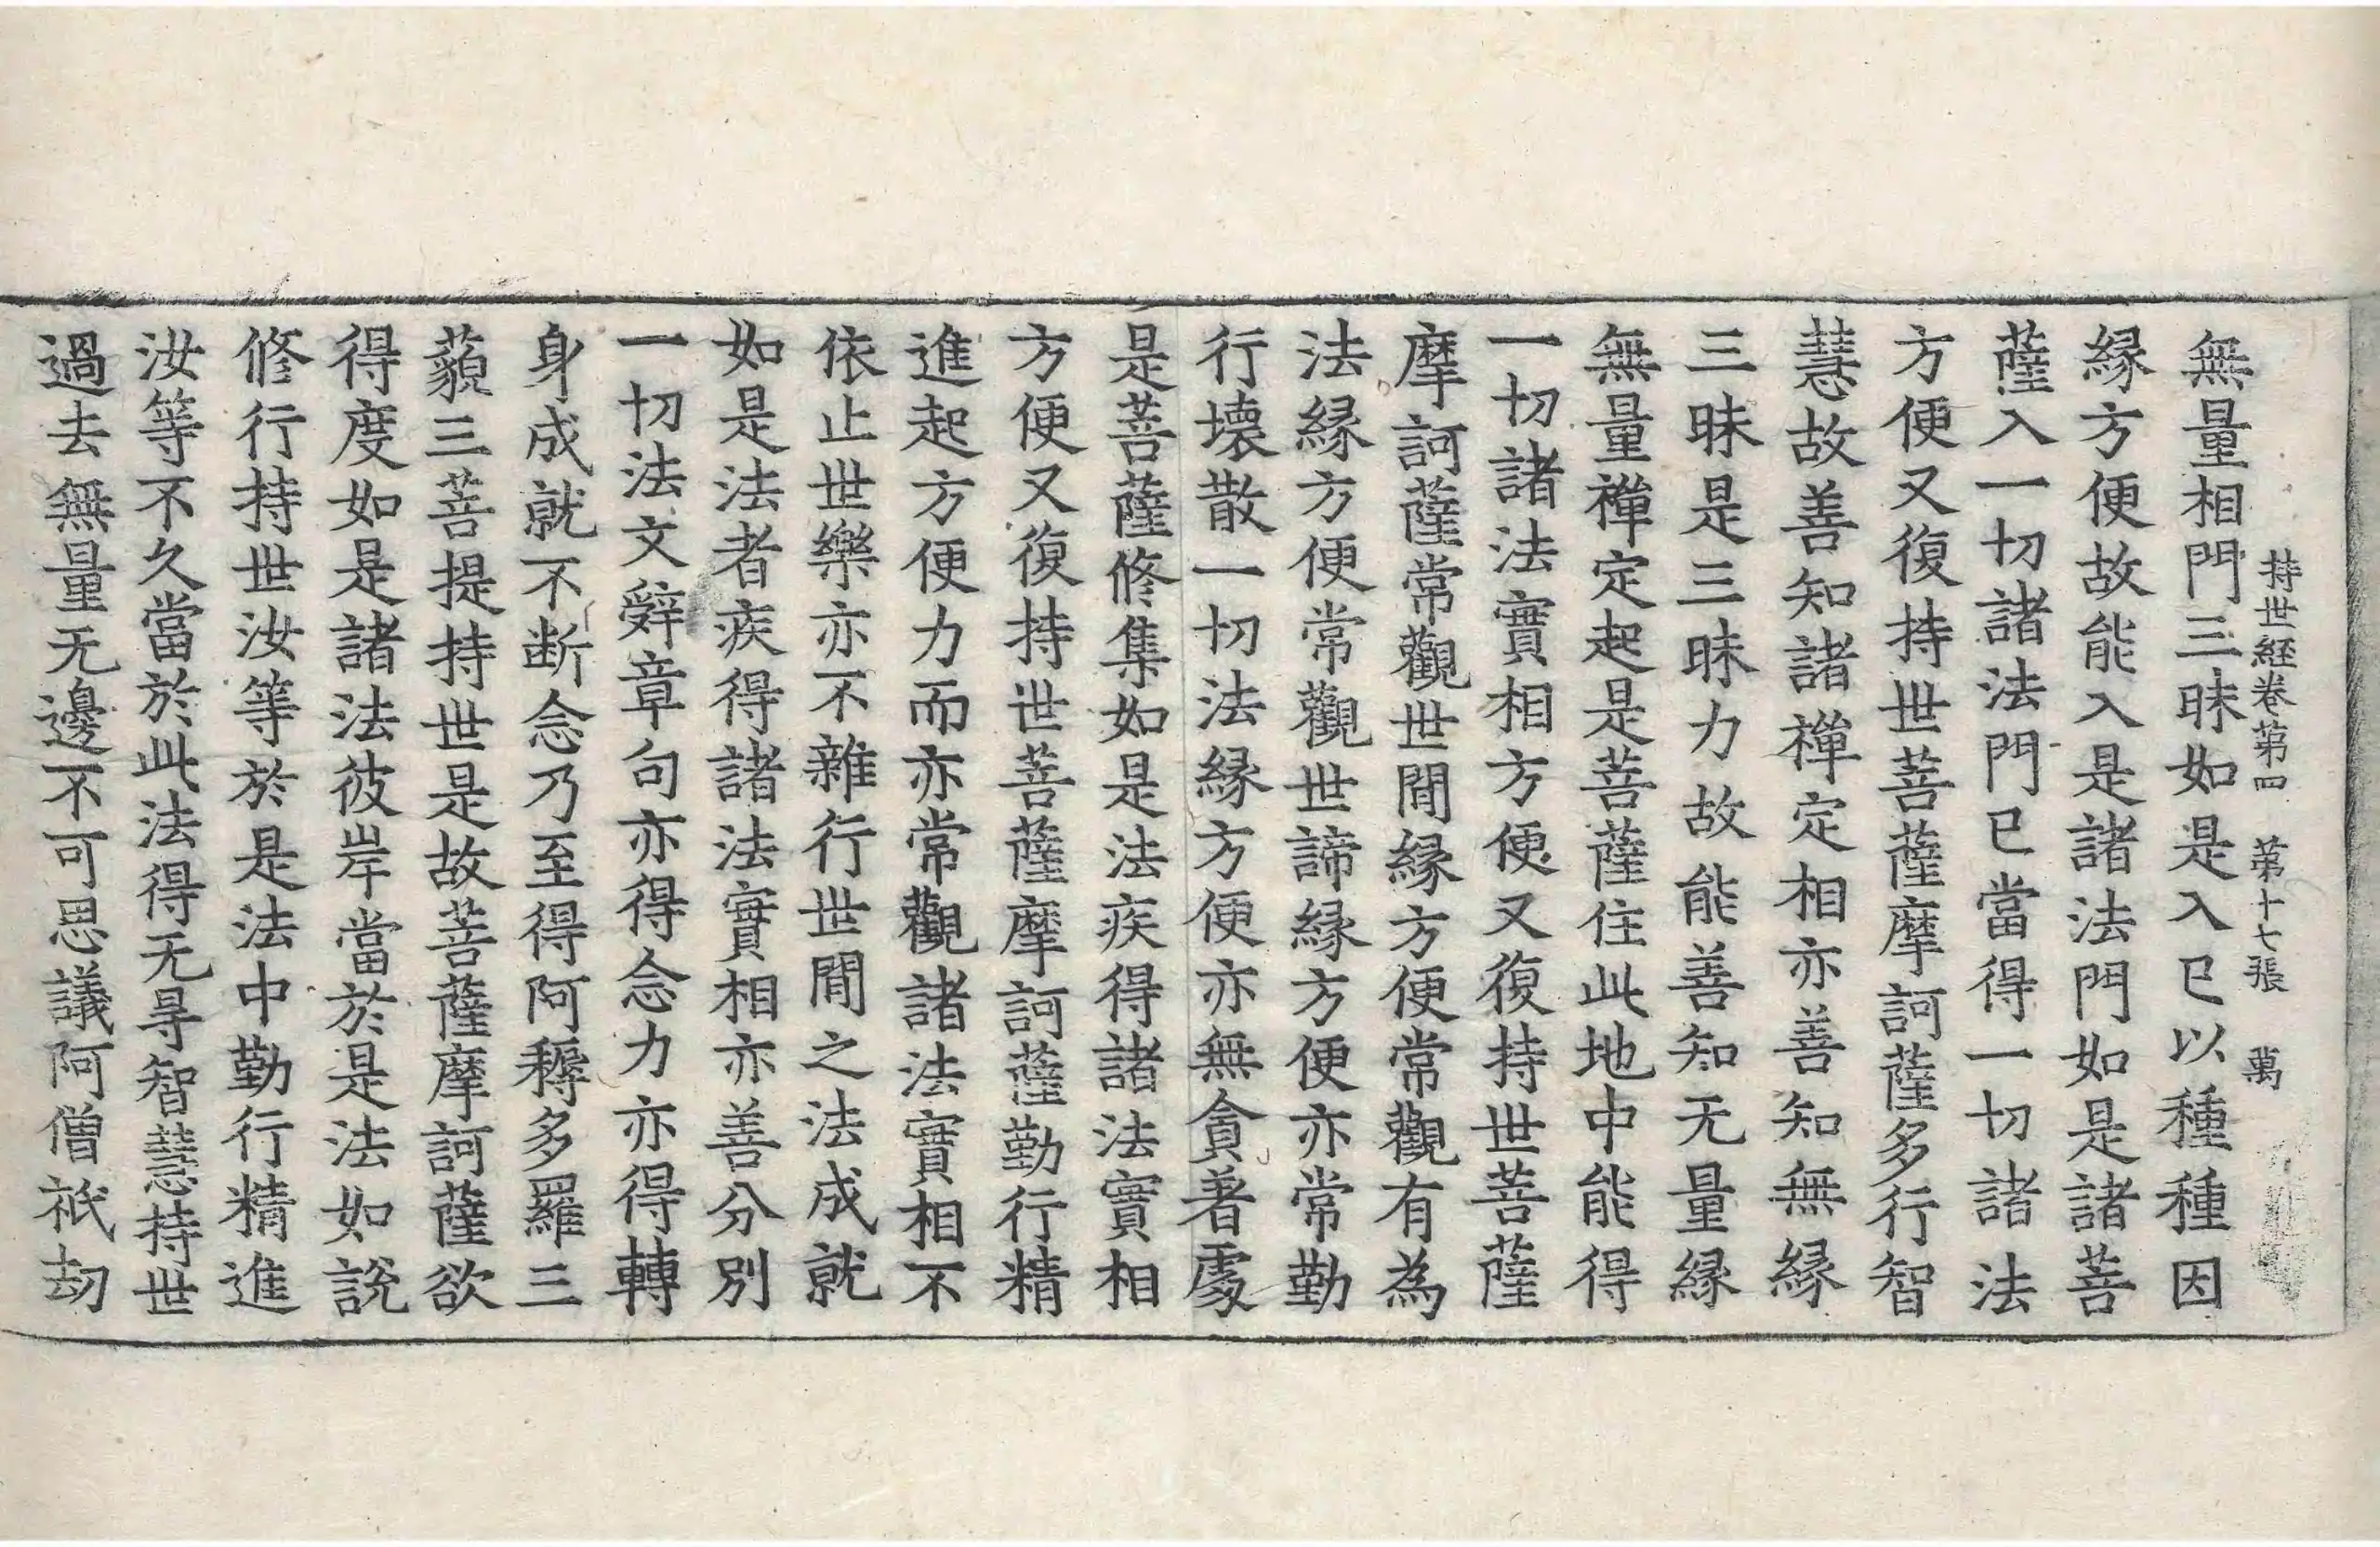 持世経卷第四　第十七張　萬
無量相門三昧如是入已以種種因
縁方便故能入是諸法門如是諸菩
薩入一切諸法門已當得一切諸法
方便又復持世菩薩摩訶薩多行智
慧故善知諸禪定相亦善知無縁
三昧是三昧力故能善知无量縁
無量禪定起是菩薩住此地中能得
一切諸法實相方便又復持世菩薩
摩訶薩常觀世間縁方便常觀有為
法縁方便常觀世諦縁方便亦常勤
行壞散一切法縁方便亦無貪著處
是菩薩修集如是法疾得諸法實相
方便又復持世菩薩摩訶薩勤行精
進起方便力而亦常觀諸法實相不
依止世樂亦不雜行世間之法成就
如是法者疾得諸法實相亦善分別
一切法文辭章句亦得念力亦得轉
身成就不断念乃至得阿耨多羅三
藐三菩提持世是故菩薩摩訶薩欲
得度如是諸法彼岸當於是法如說
修行持世汝等於是法中勤行精進
汝等不久當於此法得无㝵智慧持世
過去無量无邊不可思議阿僧祇劫